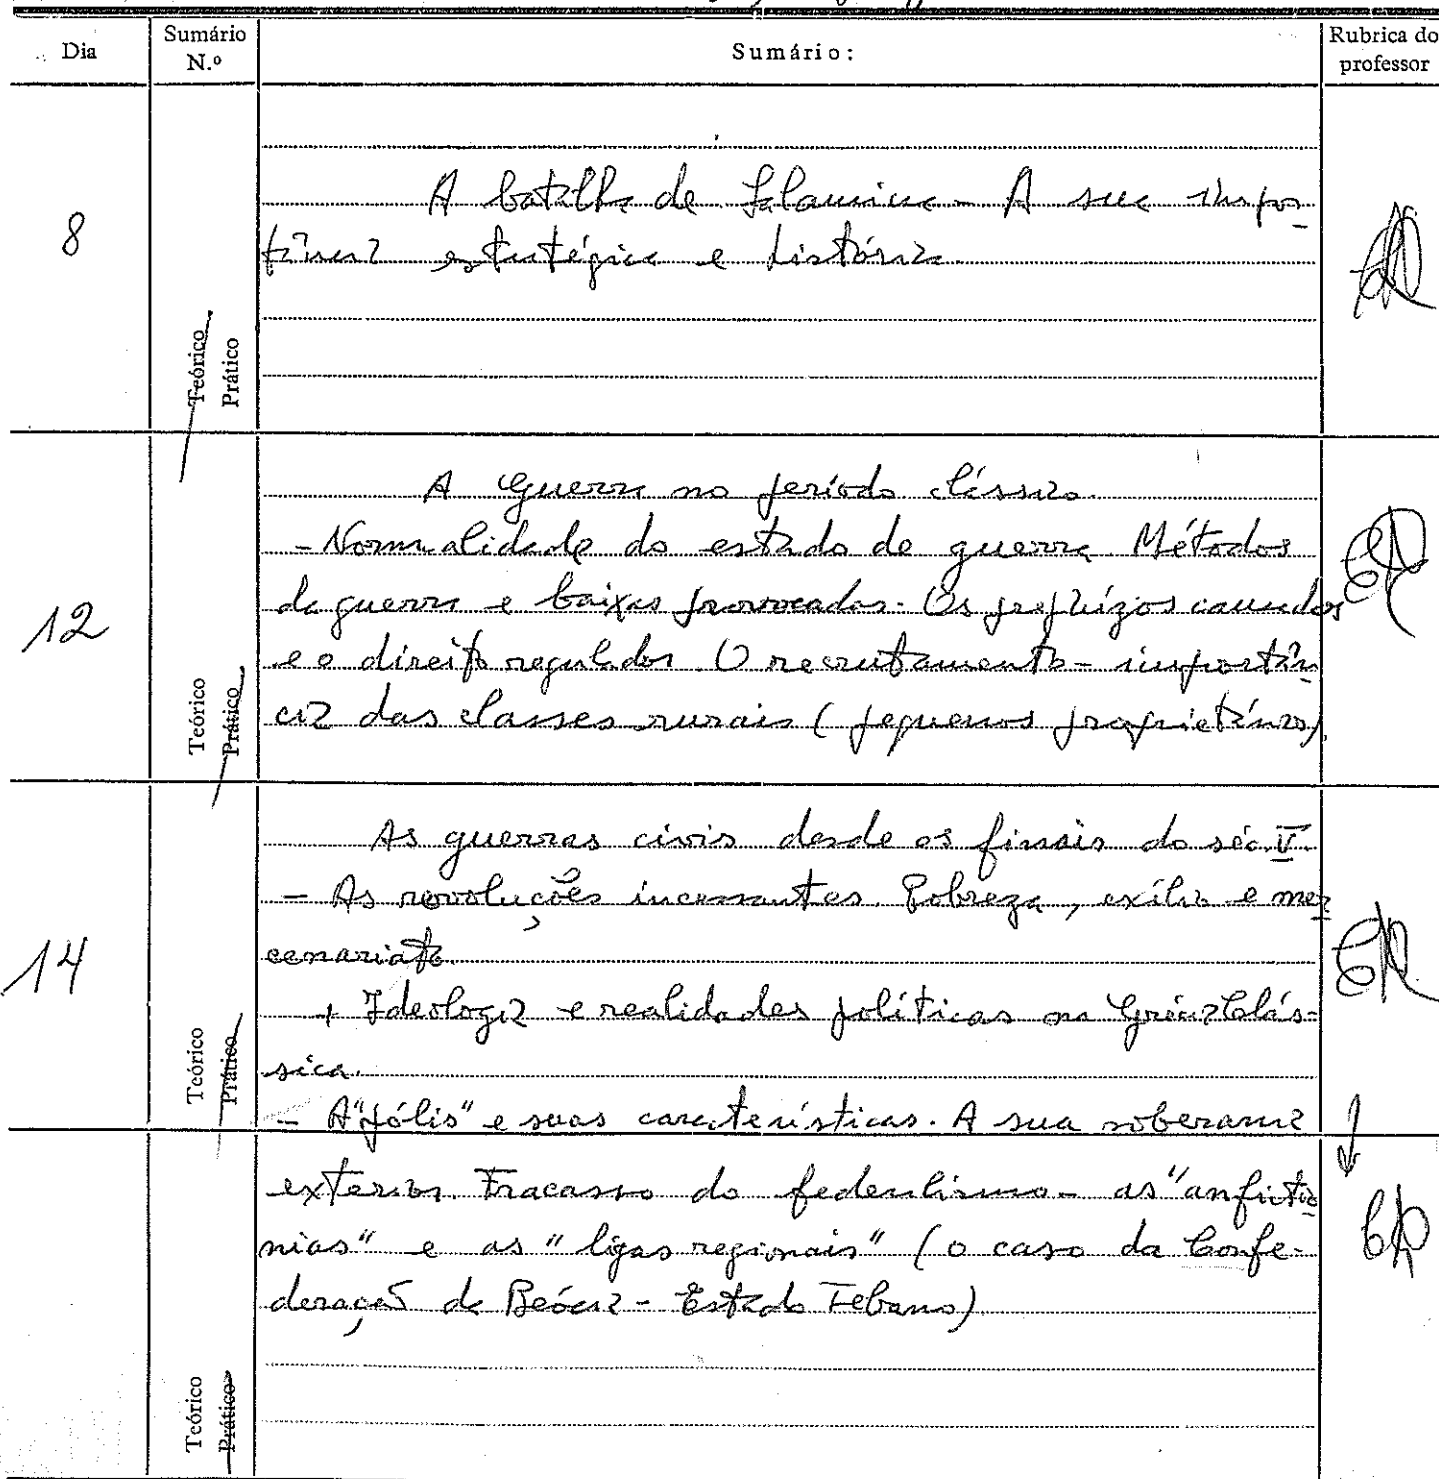 Dia
Sumário
N.º
Sumário:
Rubrica do
professor
8
Teórico
Prático
A batalha de Salamina - A sua impor-
tância estratégica e histórica.
12
Teórico
Prático
A Guerra no período clássico.
- Normalidade do estado de guerra. Métodos
da guerra e baixas provocadas. Os prejuízos causados
e o direito regulador. O recrutamento - importân
cia das classes rurais (pequenos proprietários).
14
Teórico
Prático
As guerras civis desde os finais do séc. V.
- As revoluções incessantes. Pobreza, exílio e mer
cenariato.
+ Ideologia e realidades políticas na Grécia Clás-
sica.
- A "pólis" e suas características. A sua soberania
Teórico
Prático
exterior. Fracasso do federalismo - as "anfictio
nias" e as "ligas regionais" (o caso da Confe-
deração da Beócia - Estado Tebano)